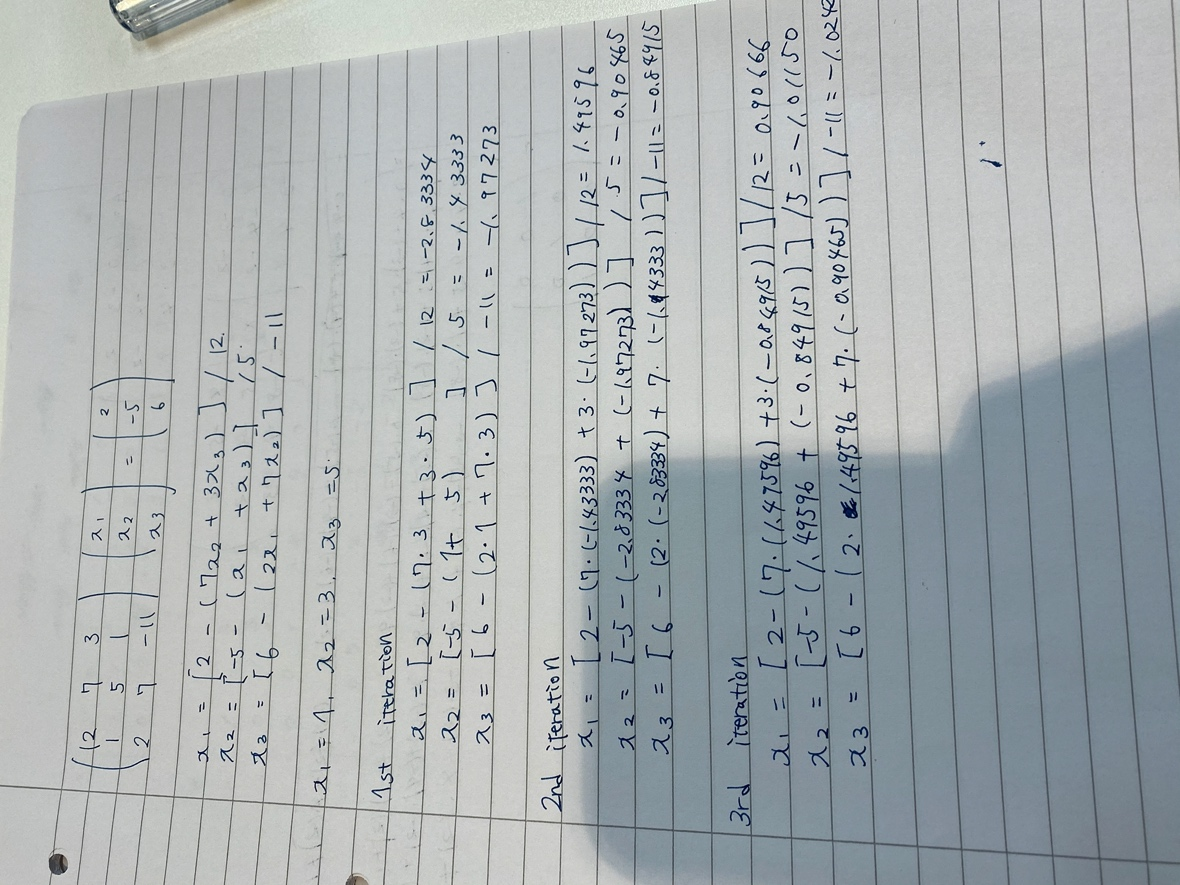 (12 7 3) (x₁) (2)
(1 5 1) (x₂) = (-5)
(2 7 -11) (x₃) (6)
x₁ = [2 - (7x₂ + 3x₃)] / 12
x₂ = [-5 - (x₁ + x₃)] / 5
x₃ = [6 - (2x₁ + 7x₂)] / -11
x₁ = 1, x₂ = 3, x₃ = 5
1st iteration
x₁ = [2 - (7·3 + 3·5)] / 12 = -2.83334
x₂ = [-5 - (1 + 5)] / 5 = -1.43333
x₃ = [6 - (2·1 + 7·3)] / -11 = -1.97273
2nd iteration
x₁ = [2 - (7·(-1.43333) + 3·(-1.97273))] / 12 = 1.49596
x₂ = [-5 - (-2.83334 + (-1.97273))] / 5 = -0.90465
x₃ = [6 - (2·(-2.83334) + 7·(-1.4333))] / -11 = -0.84915
3rd iteration
x₁ = [2 - (7·(1.49596) + 3·(-0.84915))] / 12 = 0.90666
x₂ = [-5 - (1.49596 + (-0.84915))] / 5 = -1.01150
x₃ = [6 - (2·1.49596 + 7·(-0.90465))] / -11 = -1.0242